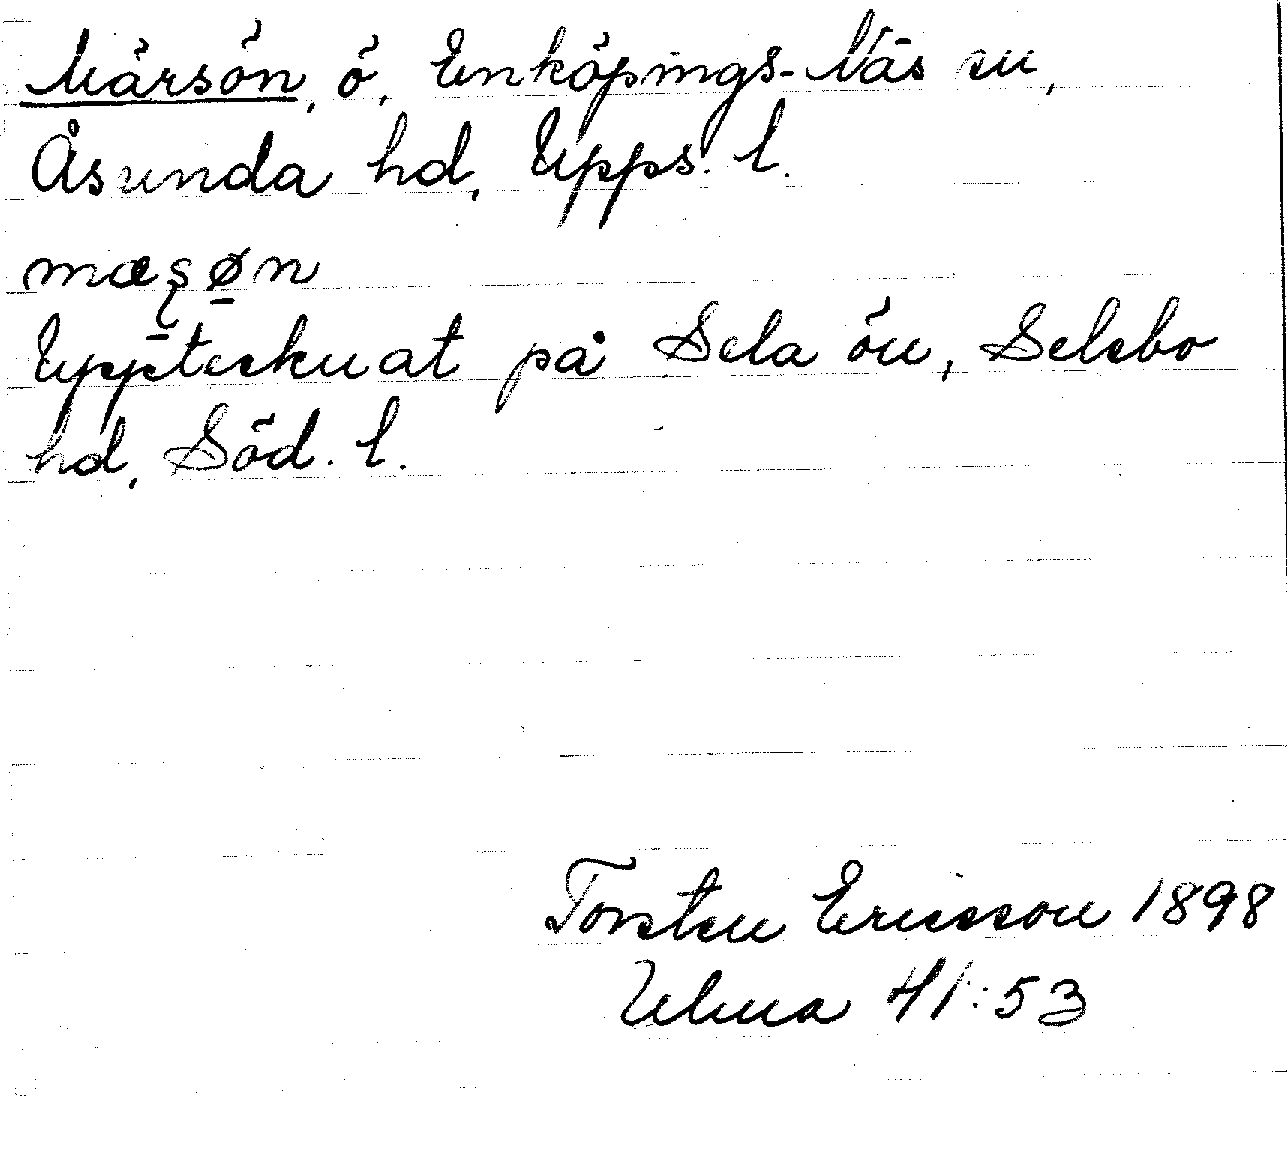 Märsön, ö, Enköpings-Näs sn,
Åsunda hd, Upps. l.
mæʂøn
Upptecknat på Sela ön, Selebo
hd, Söd. l.
Torsten Ericsson 1898
Ulma 41:53